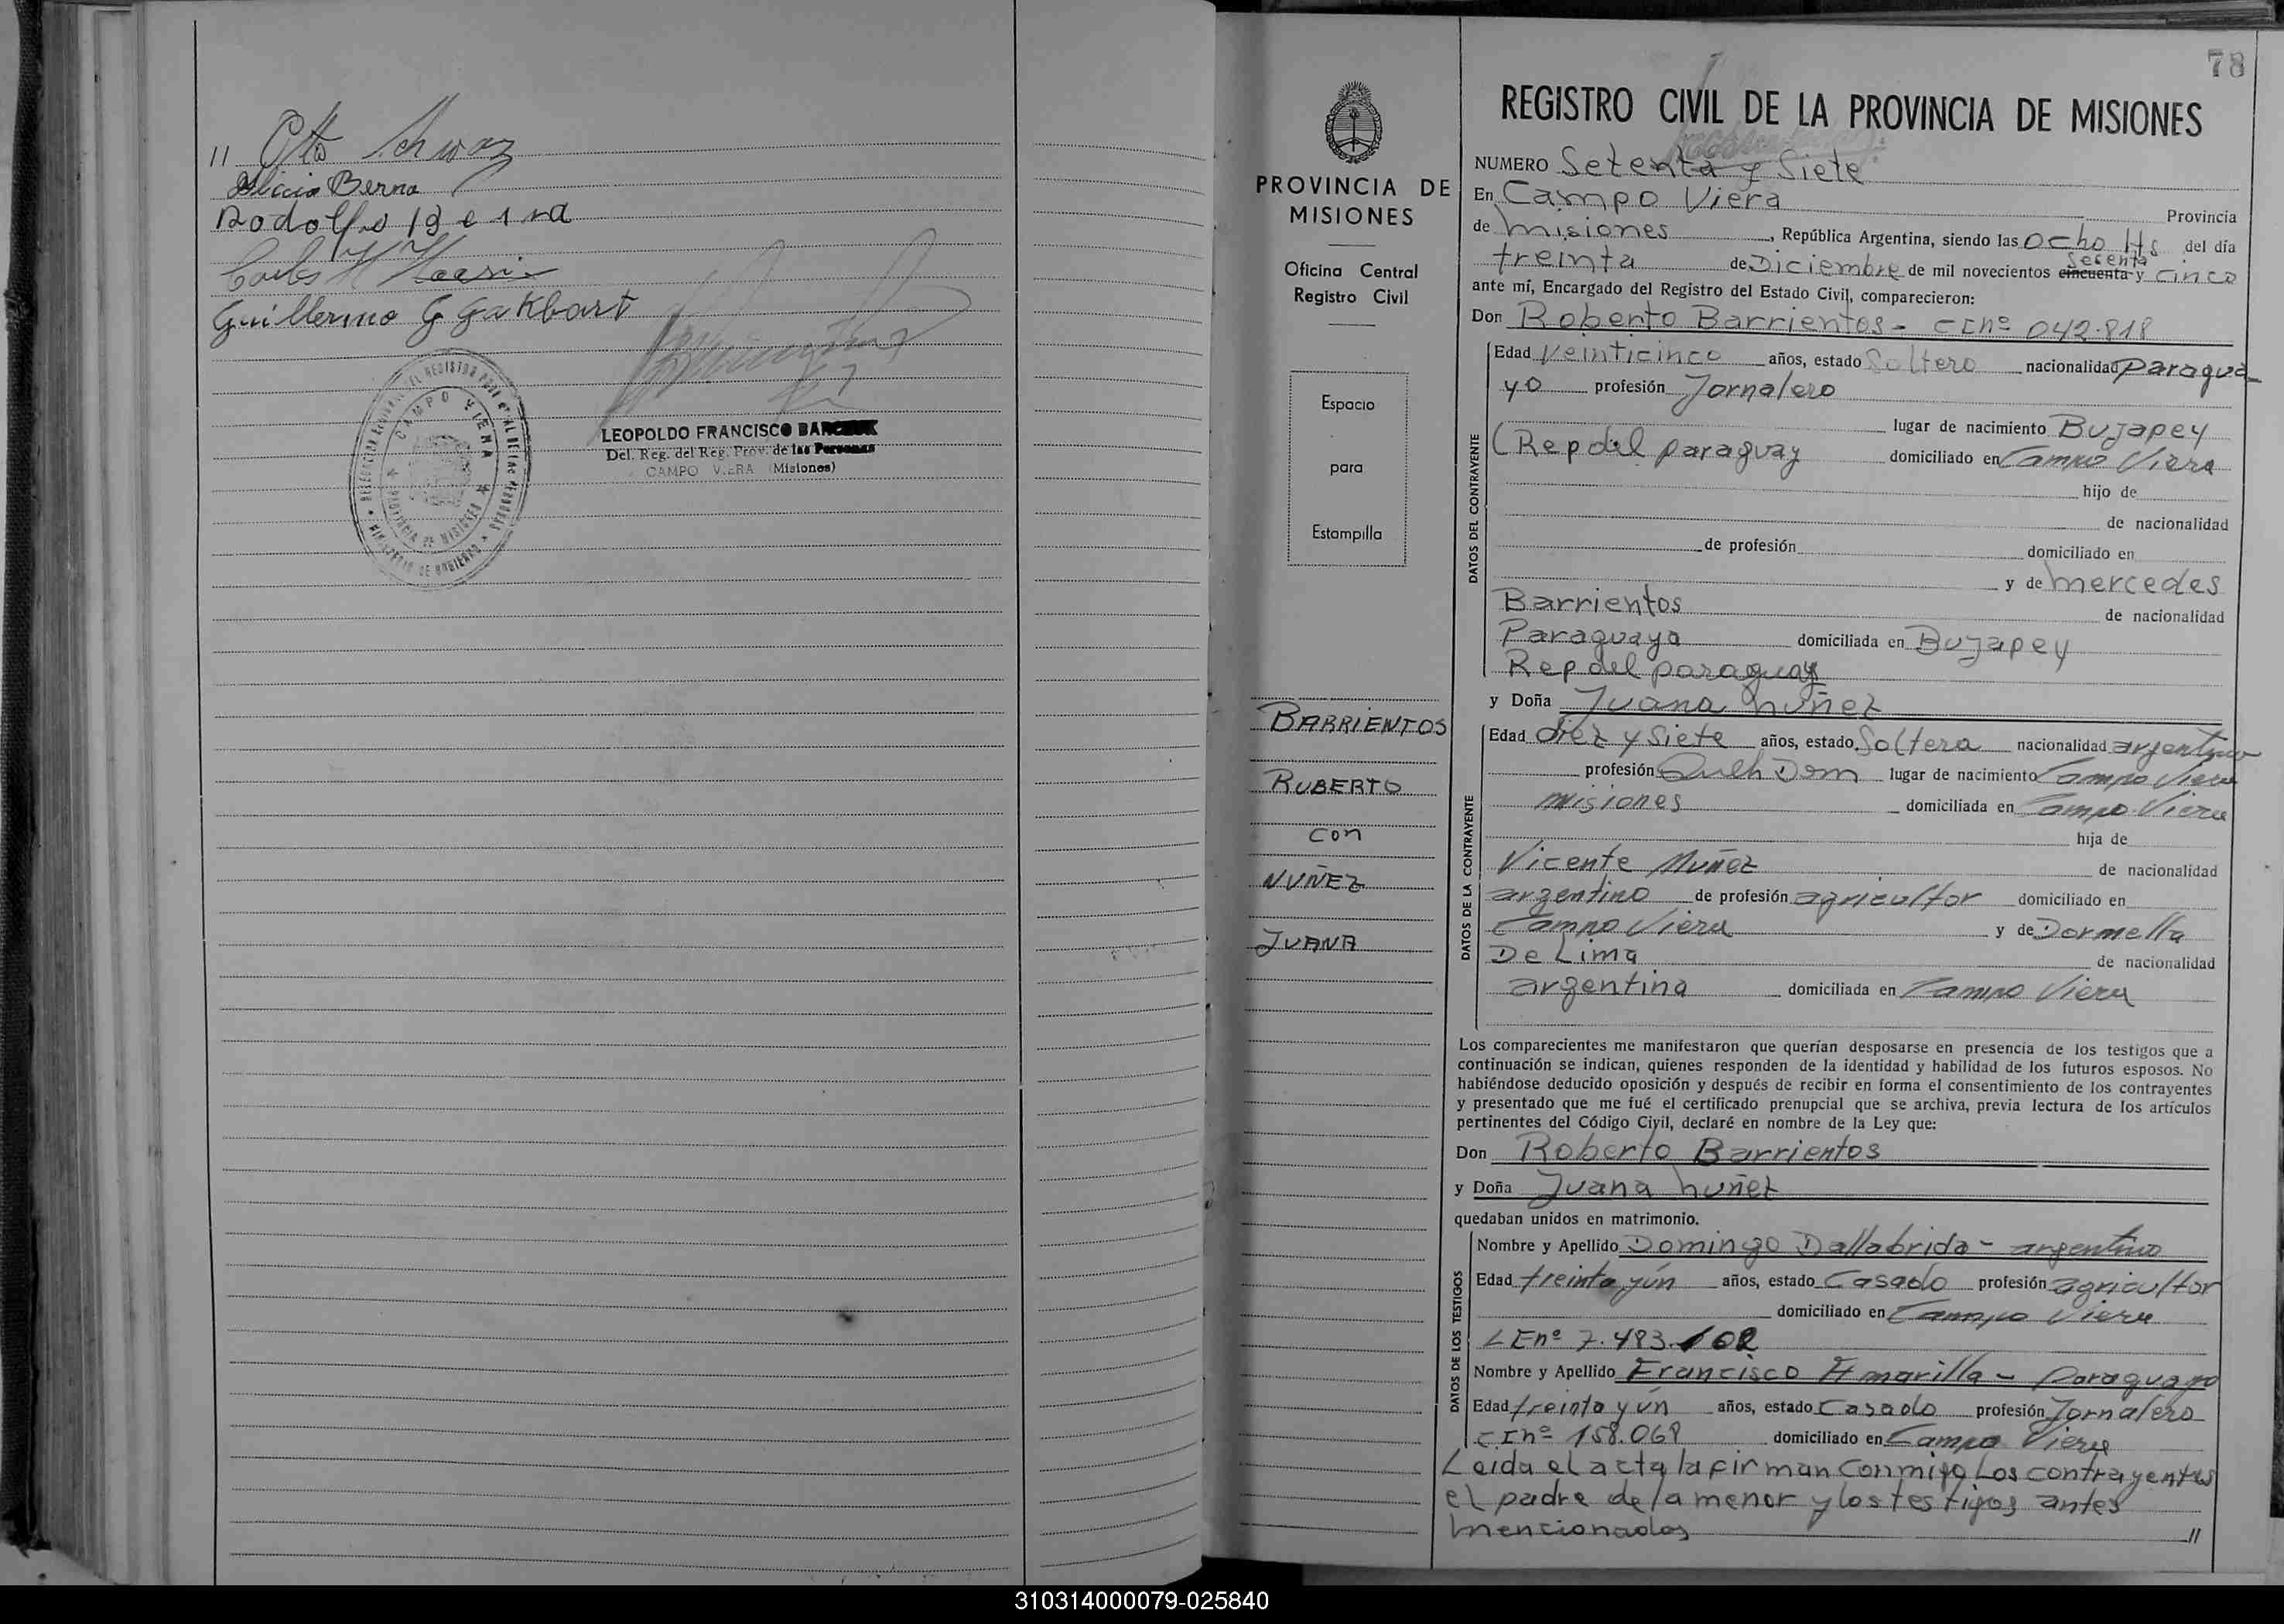 // Otto Schwaz
Alicia Berna
Rodolfo Berna
Carlos
Guillermo G Gakbart
CAMPO VIERA
PROVINCIA DE MISIONES
MINISTERIO DE GOBIERNO
LEOPOLDO FRANCISCO
Del. Reg. del Reg. Prov. de las Personas
CAMPO VIERA (Misiones)
PROVINCIA DE
MISIONES
Oficina Central
Registro Civil
Espacio
para
Estampilla
BARRIENTOS
RUBERTO
con
NUÑEZ
JUANA
78
REGISTRO CIVIL DE LA PROVINCIA DE MISIONES
NUMERO Setenta y Siete
En Campo Viera Provincia
de Misiones, República Argentina, siendo las ocho Hs del día
treinta de Diciembre de mil novecientos cincuenta y secenta cinco
ante mí, Encargado del Registro del Estado Civil, comparecieron:
Don Roberto Barrientos - CI nº 042.818
Edad Veinticinco años, estado Soltero nacionalidad paragua
yo profesión Jornalero
lugar de nacimiento Bujapey
(Rep del paraguay domiciliado en Campo Viera
hijo de
de nacionalidad
de profesión domiciliado en
y de mercedes
Barrientos de nacionalidad
Paraguaya domiciliada en Bujapey
Rep del paraguay
y Doña Juana nuñez
Edad diez y siete años, estado Soltera nacionalidad argentina
profesión Queh Dom lugar de nacimiento Campo Viera
misiones domiciliada en Campo Viera
hija de
Vicente Nuñez de nacionalidad
argentino de profesión agricultor domiciliado en
Campo Viera y de Dormella
De Lima de nacionalidad
argentina domiciliada en Campo Viera
Los comparecientes me manifestaron que querían desposarse en presencia de los testigos que a
continuación se indican, quienes responden de la identidad y habilidad de los futuros esposos. No
habiéndose deducido oposición y después de recibir en forma el consentimiento de los contrayentes
y presentado que me fué el certificado prenupcial que se archiva, previa lectura de los artículos
pertinentes del Código Civil, declaré en nombre de la Ley que:
Don Roberto Barrientos
y Doña Juana nuñez
quedaban unidos en matrimonio.
Nombre y Apellido Domingo Dallabrida - argentino
Edad treinta y ún años, estado Casado profesión agricultor
domiciliado en Campo Viera
LE nº 7.483.102
Nombre y Apellido Francisco Amarilla - Paraguayo
Edad treinta y ún años, estado Casado profesión Jornalero
C.I nº 158.068 domiciliado en Campo Viera
Leida el acta la firman conmigo Los contrayentes
el padre de la menor y los testigos antes
mencionados //
DATOS DEL CONTRAYENTE
DATOS DE LA CONTRAYENTE
DATOS DE LOS TESTIGOS
310314000079-025840